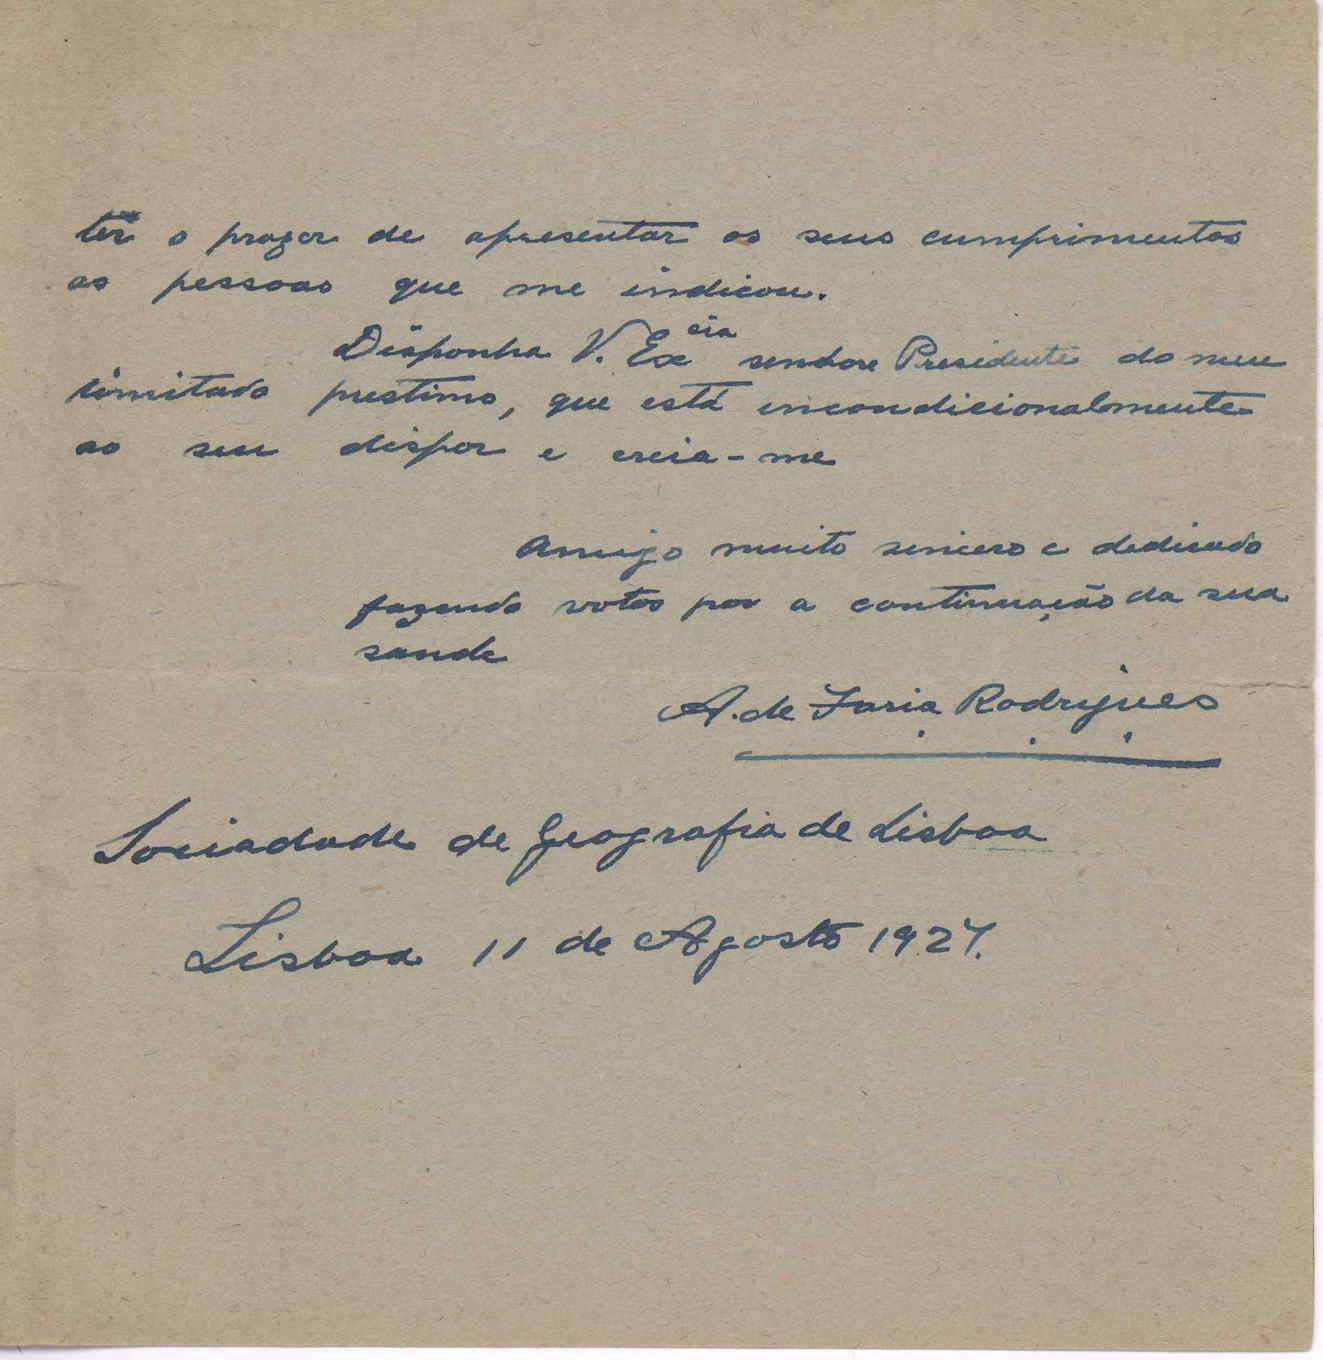 ter o prazer de apresentar os seus cumprimentos
as pessoas que me indicou.
Disponha V. Ex.cia senhor Presidente do meu
limitado prestimo, que está incondicionalmente
ao seu dispor e creia-me
Amigo muito sincero e dedicado
fazendo votos por a continuação da sua
saude
A. de Faria Rodrigues
Sociedade de Geografia de Lisboa
Lisboa 11 de Agosto 1927.